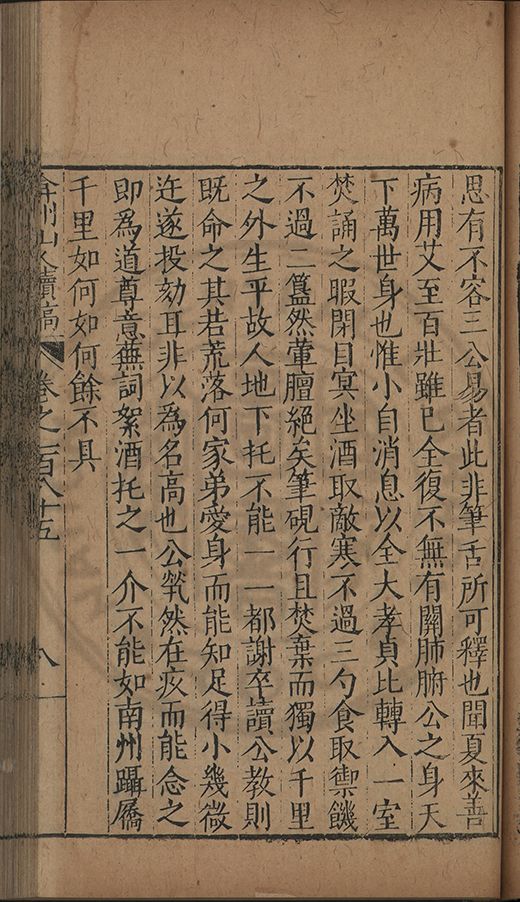 思有不容三公易者此非筆舌所可釋也聞夏來善
病用艾至百壯雖已全復不無有關肺腑公之身天
下萬世身也惟小自消息以全大孝貞比轉入一室
焚誦之暇閉目冥坐酒取敵寒不過三勺食取禦饑
不過二簋然葷膻絕矣筆硯行且焚棄而獨以千里
之外生平故人地下托不能一一都謝卒讀公教則
既命之其若荒落何家弟愛身而能知足得小幾微
迕遂投劾耳非以為名高也公煢然在疚而能念之
即為道尊意蕪詞絮酒托之一介不能如南州躡屩
千里如何如何餘不具
弇州山人續稿 卷之一百八十五 八